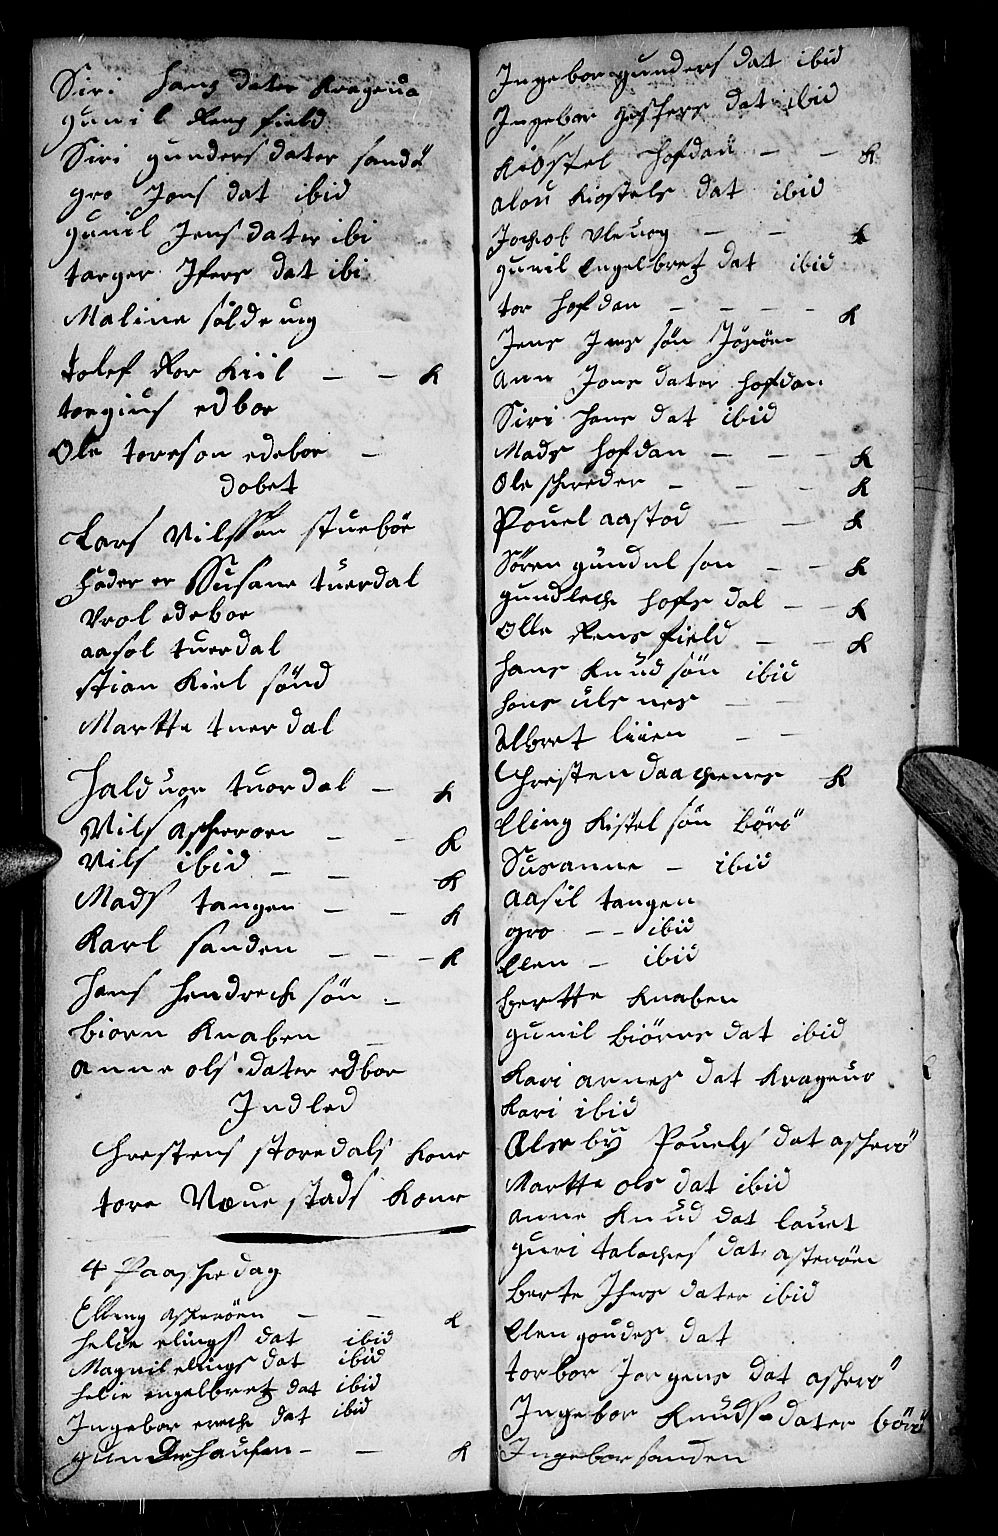 Siri Hans dater Krageuo
gunil Rens field
Siri gunders dater sandö
gro Jons dat ibid
gunil Jens dater ibi
targer Ifers dat ibi
Maline sildeuig
tolef Kor Kiil — — K
torgius edboe
Ole toreson edeboe —
dobet
Lars Nilssøn stuebøe
fader er Susane tuerdal
Vrol edeboe
aasol tuerdal
stian Kiel sönd
Martte tuerdal
Halduor tuordal — K
Nils askerøen — — K
Nils ibid — — K
Mads tangen — — K
Karl sanden — — — K
Hans Hendrech sön —
biorn Knaben —
anne ols dater edboe
Indled
Chrestens storedals Kone
tore Væuestads Kone
4 Paaskedag
Elleng askerøen — — K
helie elings dat ibid
Magnil elings dat ibid
helie engelbret dat ibid
Ingebor erechs dat ibid
gunder haufen — — K
Ingebor gunders dat ibid
Ingebor dat ibid
Kiöstel hofdan — — K
alou Kiöstels dat ibid
Jochob vleuog — — K
gunil Engelbret dat ibid
tor hofdan — — — — K
Jens Jens sön
ann Jons dater hofdan
Siri hans dat ibid
Mads hofdan — — — K
Ole schreder — — — K
Pouel aastad — — K
Sören gundul son — — K
gundlech hofs dal — — K
Olle Rens field — — K
hans Knud sön ibid
hans ulsnes — —
albret liien — —
Chresten daachenes K
Elling Kistel sön börö
Susanne — ibid
aasil tangen
gro — — ibid
Elen — ibid
bertte Knaben
gunil biörns dat ibid
Kari arnes dat Krageuo
Kari ibid
Else by Pouels dat askerö
Martte ols dat ibid
anne Knud dat lauet
guri taloches dat asterøen
berte Ifers dater ibid
Elen goudes dat
torbor Jorgens dat askerö
Ingebor Knuds dater börö
Ingebor sanden